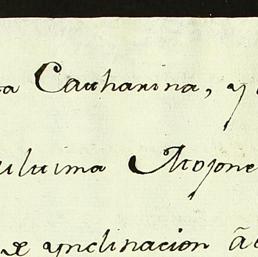 a Catharina, y
ultima Mojone
de ynclinacion â